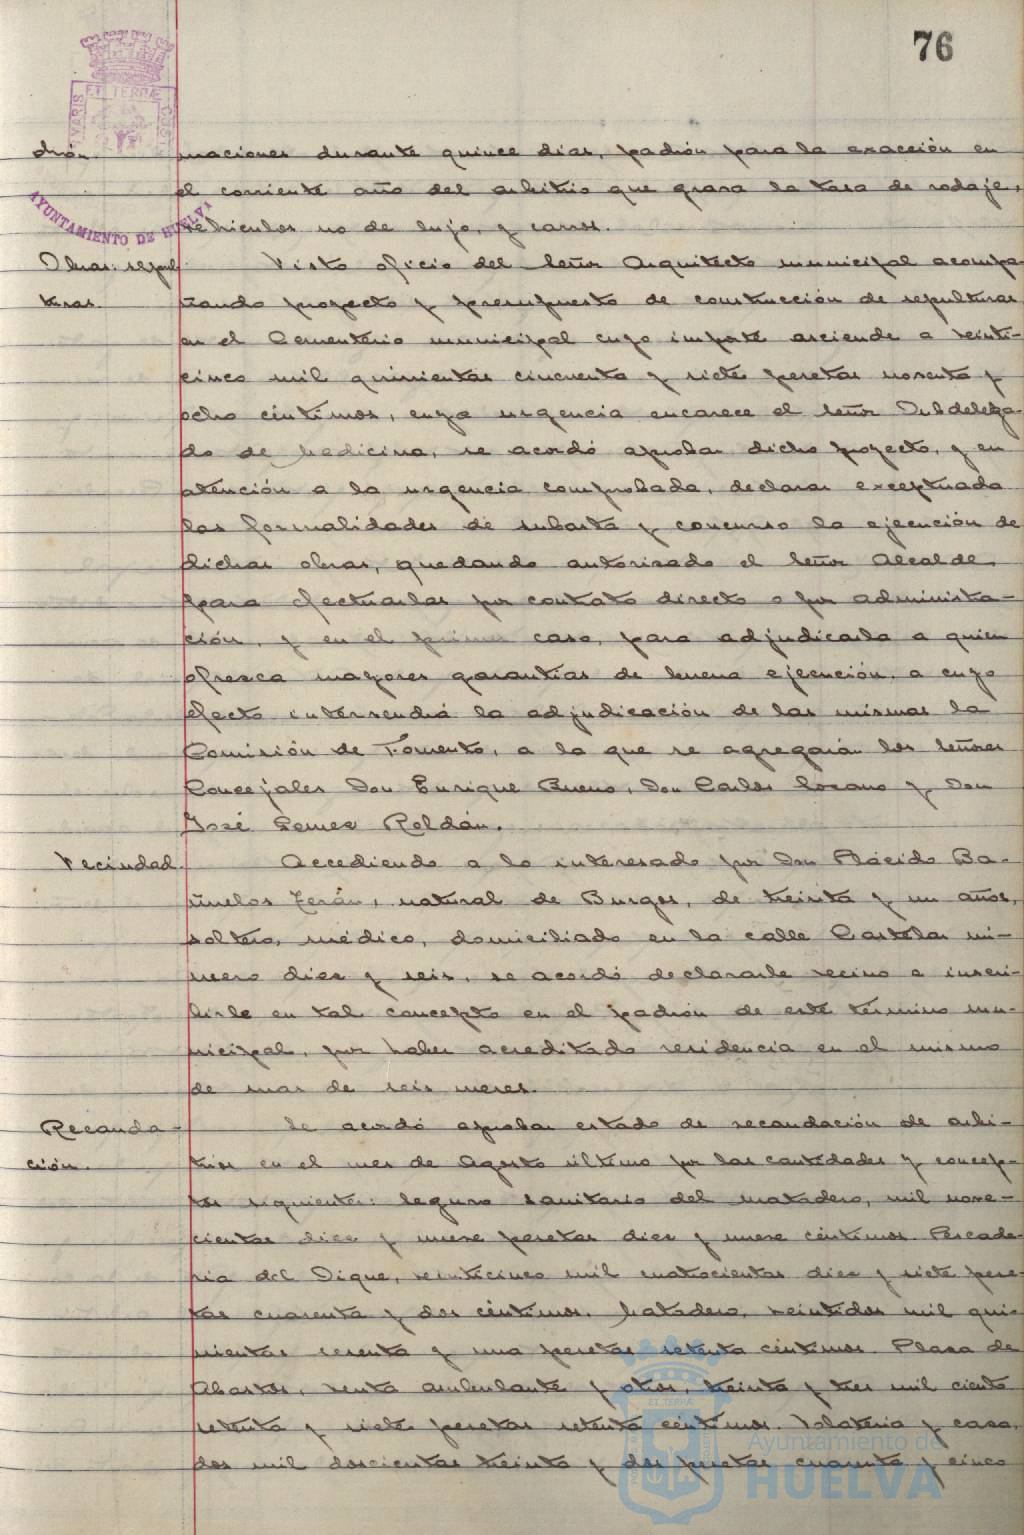 76
PORTUS MARIS ET TERRAE CUSTODIA
AYUNTAMIENTO DE HUELVA
drón.
maciones durante quince dias, padrón para la exacción en
el corriente año del arbitrio que grava la tasa de rodaje,
vehiculos no de lujo, y carros.
Obras: sepul
turas.
Visto oficio del Señor Arquitecto municipal acompa-
ñando proyecto y presupuesto de construcción de sepulturas
en el Cementerio municipal cuyo importe asciende a veinti-
cinco mil quinientas cincuenta y siete pesetas noventa y
ocho céntimos, cuya urgencia encarece el Señor Subdelega-
do de Medicina, se acordó aprobar dicho proyecto, y en
atención a la urgencia comprobada, declarar exceptuada
las formalidades de subasta y concurso la ejecución de
dichas obras, quedando autorizado el Señor Alcalde
para efectuarlas por contrato directo o por administra-
ción, y en el primer caso, para adjudicarla a quien
ofrezca mayores garantías de buena ejecución, a cuyo
efecto intervendrá la adjudicación de las mismas la
Comisión de Fomento, a la que se agregarán los Señores
Concejales Don Enrique Bueno, Don Carlos Lozano y Don
José Gemez Roldán.
Vecindad
Accediendo a lo interesado por Don Plácido Ba-
ñuelos Terán, natural de Burgos, de treinta y un años,
soltero, médico, domiciliado en la calle Castelar nú-
mero diez y seis, se acordó declararle vecino e inscri-
birle en tal concepto en el padrón de este término mu-
nicipal, por haber acreditado residencia en el mismo
de mas de seis meses.
Recauda-
ción.
Se acordó aprobar estado de recaudación de arbi-
trios en el mes de Agosto último por las cantidades y concep-
tos siguientes: Seguro sanitario del matadero, mil nove-
cientas diez y nueve pesetas diez y nueve céntimos. Pescade-
ria del Dique, veinticinco mil cuatrocientas diez y siete pese-
tas cuarenta y dos céntimos. Matadero, veintidos mil qui-
nientas sesenta y una pesetas setenta céntimos. Plaza de
Abastos, venta ambulante y otros, treinta y tres mil ciento
setenta y siete pesetas setenta céntimos. Volateria y caza,
dos mil doscientas treinta y dos pesetas cuarenta y cinco
Ayuntamiento de
HUELVA